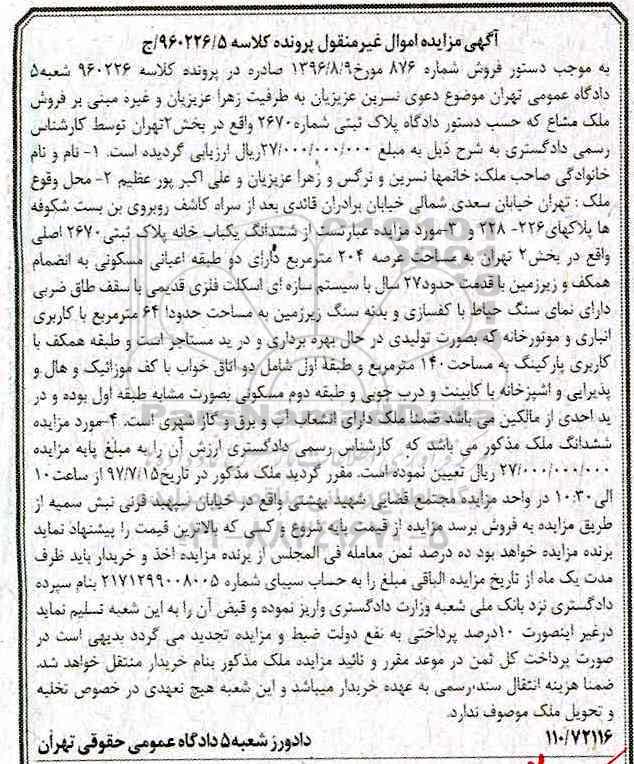 آگهی مزایده اموال غیرمنقول پرونده کلاسه ۹۶۰۲۲۶/۵/ج
به موجب دستور فروش شماره ۸۷۶ مورخ۱۳۹۶/۸/۹ صادره در پرونده کلاسه ۹۶۰۲۲۶ شعبه۵
دادگاه عمومی تهران موضوع دعوی نسرین عزیزیان به طرفیت زهرا عزیزیان و غیره مبنی بر فروش
ملک مشاع که حسب دستور دادگاه پلاک ثبتی شماره۲۶۷۰ واقع در بخش۲تهران توسط کارشناس
رسمی دادگستری به شرح ذیل به مبلغ ۲۷/۰۰۰/۰۰۰/۰۰۰ریال ارزیابی گردیده است. ۱- نام و نام
خانوادگی صاحب ملک: خانمها نسرین و نرگس و زهرا عزیزیان و علی اکبر پور عظیم ۲- محل وقوع
ملک : تهران خیابان سعدی شمالی خیابان برادران قائدی بعد از سراه کاشف روبروی بن بست شکوفه
ها پلاکهای۲۲۶- ۲۲۸ و ۳-مورد مزایده عبارتست از ششدانگ یکباب خانه پلاک ثبتی۲۶۷۰ اصلی
واقع در بخش۲ تهران به مساحت عرصه ۲۰۴ مترمربع دارای دو طبقه اعیانی مسکونی به انضمام
همکف و زیرزمین با قدمت حدود۲۷ سال با سیستم سازه ای اسکلت فلزی قدیمی با سقف طاق ضربی
دارای نمای سنگ حیاط با کفسازی و بدنه سنگ زیرزمین به مساحت حدودا ۶۴ مترمربع با کاربری
انباری و موتورخانه که بصورت تولیدی در حال بهره برداری و در ید مستاجر است و طبقه همکف با
کاربری پارکینگ به مساحت۱۴۰ مترمربع و طبقه اول شامل دو اتاق خواب با کف موزائیک و هال و
پذیرایی و آشپزخانه با کابینت و درب چوبی و طبقه دوم مسکونی بصورت مشابه طبقه اول بوده و در
ید احدی از مالکین می باشد ضمنا ملک دارای انشعاب آب و برق و گاز شهری است. ۴-مورد مزایده
ششدانگ ملک مذکور می باشد که کارشناس رسمی دادگستری ارزش آن را به مبلغ پایه مزایده
۲۷/۰۰۰/۰۰۰/۰۰۰ ریال تعیین نموده است. مقرر گردید ملک مذکور در تاریخ۹۷/۷/۱۵ از ساعت۱۰
الی۱۰:۳۰ در واحد مزایده مجتمع قضایی شهید بهشتی واقع در خیابان سپهبد قرنی نبش سمیه از
طریق مزایده به فروش برسد مزایده از قیمت پایه شروع و کسی که بالاترین قیمت را پیشنهاد نماید
برنده مزایده خواهد بود ده درصد ثمن معامله فی المجلس از برنده مزایده اخذ و خریدار باید ظرف
مدت یک ماه از تاریخ مزایده الباقی مبلغ را به حساب سیبای شماره ۲۱۷۱۲۹۹۰۰۸۰۰۵ بنام سپرده
دادگستری نزد بانک ملی شعبه وزارت دادگستری واریز نموده و قبض آن را به این شعبه تسلیم نماید
درغیر اینصورت ۱۰درصد پرداختی به نفع دولت ضبط و مزایده تجدید می گردد بدیهی است در
صورت پرداخت کل ثمن در موعد مقرر و تائید مزایده ملک مذکور بنام خریدار منتقل خواهد شد.
ضمنا هزینه انتقال سند،رسمی به عهده خریدار میباشد و این شعبه هیچ تعهدی در خصوص تخلیه
و تحویل ملک موصوف ندارد.
۱۱۰/۷۲۱۱۶ دادورز شعبه۵ دادگاه عمومی حقوقی تهران
ParsNamadData
۰۲۱-۸۸۳۴۹۶۷۰-۵